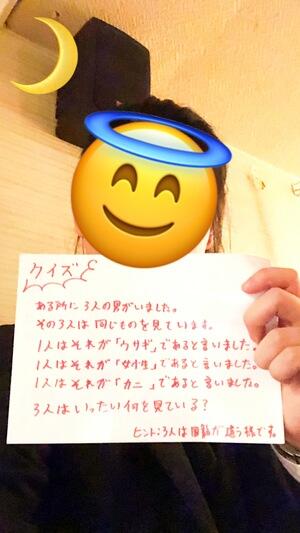 クイズ
ある所に3人の男がいました。
その3人は同じものを見ています。
1人はそれが「ウサギ」であると言いました。
1人はそれが「女性」であると言いました。
1人はそれが「カニ」であると言いました。
3人はいったい何を見ている?
ヒント:3人は国籍が違う様です。